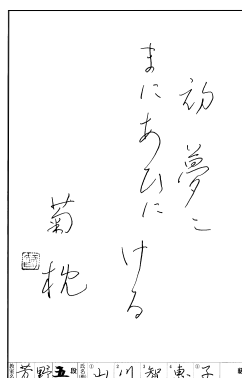 初夢に
まにあひに
ける
菊枕
芳野 五 段 山川智恵子